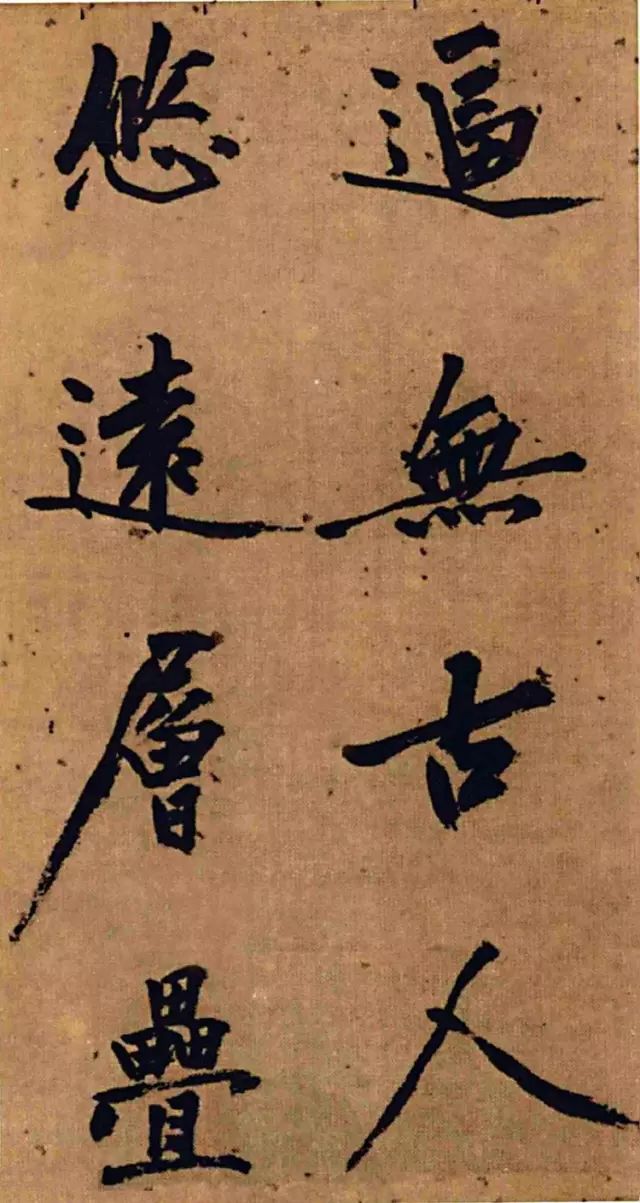 逼無古人
悠遠層疊